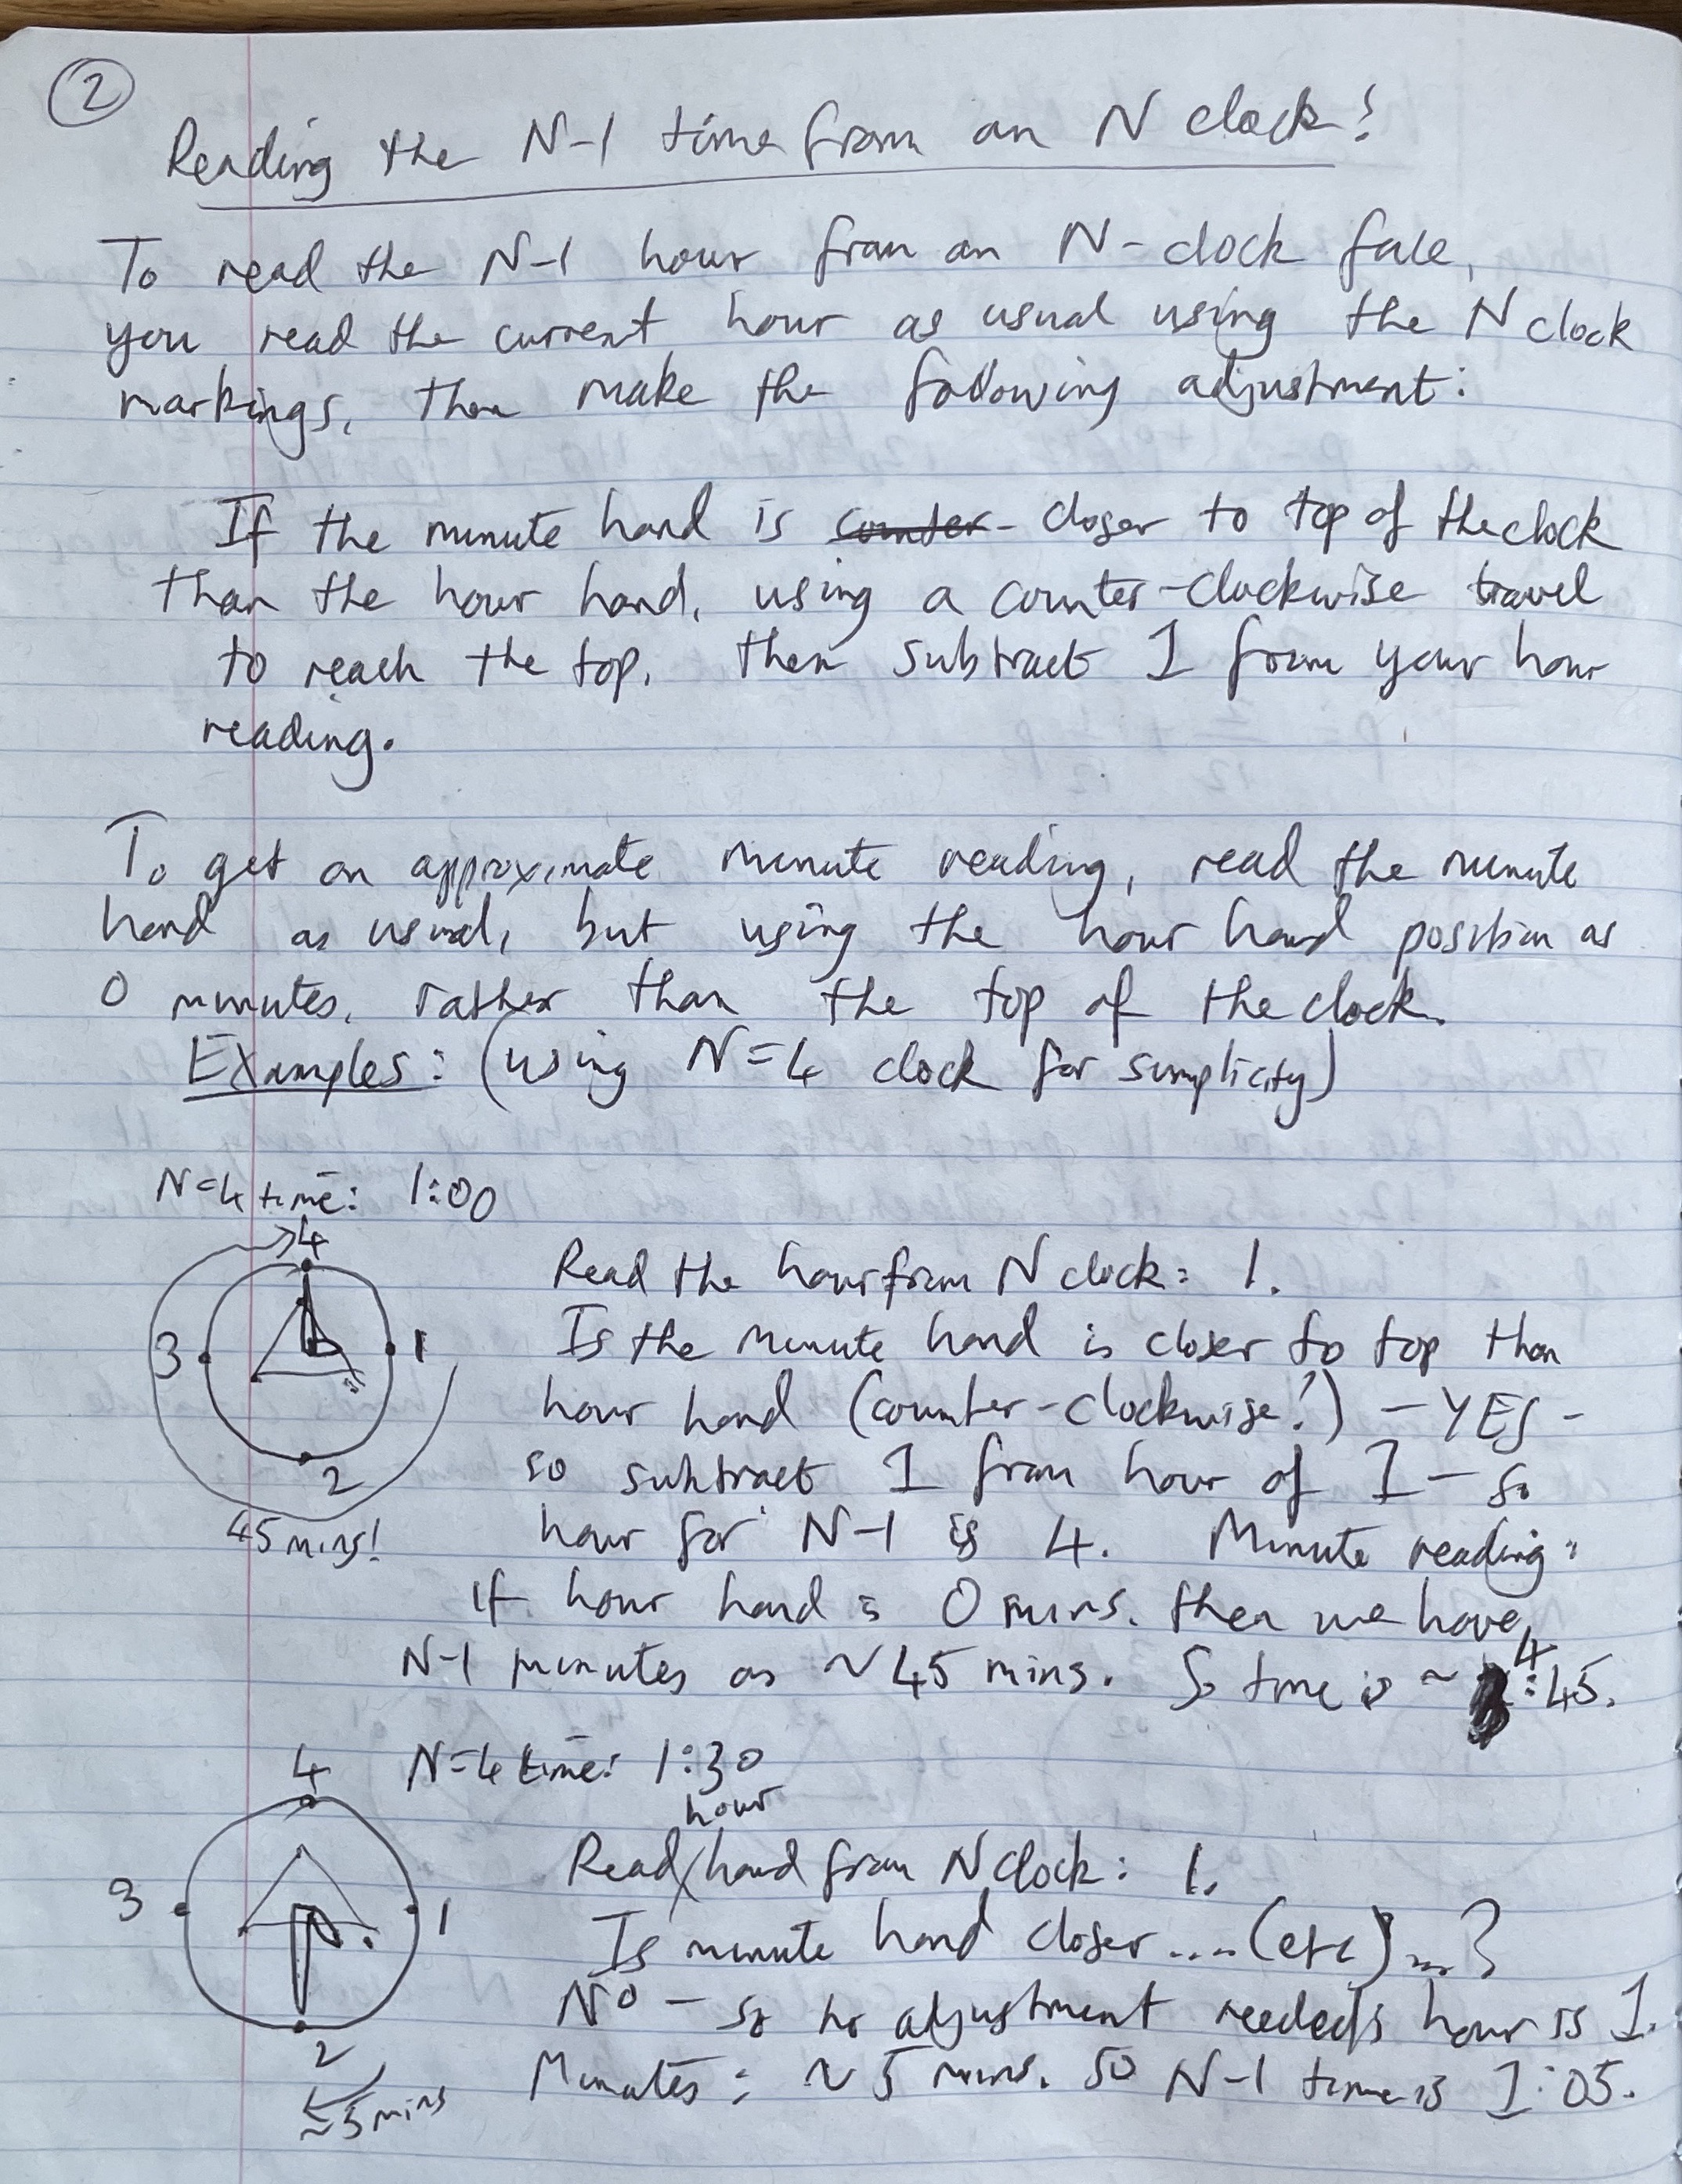 2
Reading the N-1 time from an N clock!
To read the N-1 hour from an N-clock face,
you read the current hour as usual using the N clock
markings, then make the following adjustment:
If the minute hand is counter- closer to top of the clock
than the hour hand, using a counter-clockwise travel
to reach the top, then subtract 1 from your hour
reading.
To get an approximate minute reading, read the minute
hand as usual, but using the hour hand position as
0 minutes, rather than the top of the clock.
Examples: (using N=4 clock for simplicity)
N=4 time: 1:00
4
3
1
2
45 mins!
Read the hour from N clock: 1.
Is the minute hand is closer to top than
hour hand (counter-clockwise!) - YES -
so subtract 1 from hour of 1 - so
hour for N-1 is 4. Minute reading:
if hour hand is 0 mins, then we have
N-1 minutes as ~45 mins. So time is ~ 4:45.
N=4 time: 1:30
4
3
1
2
≈5 mins
Read hour hand from N clock: 1.
Is minute hand closer .... (etc) ... ?
NO - so no adjustment needed, hour is 1.
Minutes: ~5 mins. So N-1 time is 1:05.